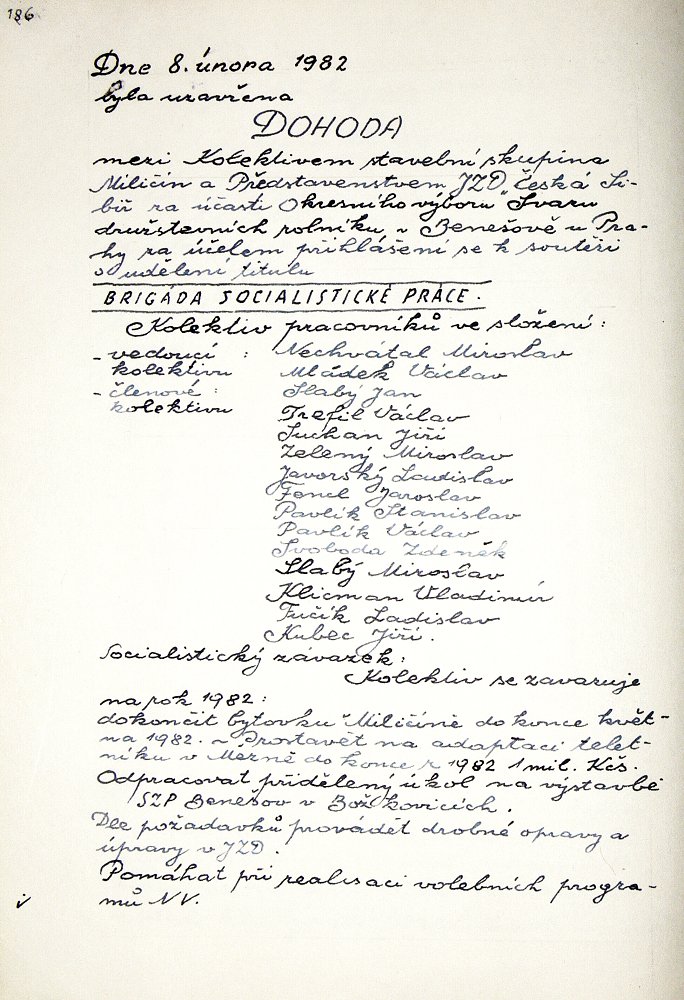 186
Dne 8. února 1982
byla uzavřena
DOHODA
mezi Kolektivem stavební skupina
Miličín a Představenstvem JZD „Česká Si-
biř za účasti Okresního výboru Svazu
družstevních rolníků v Benešově u Pra-
hy za účelem přihlášení se k soutěži
o udělení titulu
BRIGÁDA SOCIALISTICKÉ PRÁCE.
Kolektiv pracovníků ve složení:
- vedoucí : Nechvátal Miroslav
kolektivu Mládek Václav
- členové : Slabý Jan
kolektivu Trefil Václav
Suchan Jiří
Zelený Miroslav
Javorský Ladislav
Fencl Jaroslav
Pavlík Stanislav
Pavlík Václav
Svoboda Zdeněk
Slabý Miroslav
Klicman Vladimír
Fučík Ladislav
Kubec Jiří.
Socialistický závazek:
Kolektiv se zavazuje
na rok 1982:
dokončit bytovku Miličíně do konce květ-
na 1982. - Prostavět na adaptaci telet-
níku v Mezně do konce r. 1982 1 mil. Kčs.
Odpracovat přidělený úkol na výstavbě
SZP Benešov v Božkovicích.
Dle požadavků provádět drobné opravy a
úpravy v JZD.
Pomáhat při realisaci volebních progra-
mů NV.